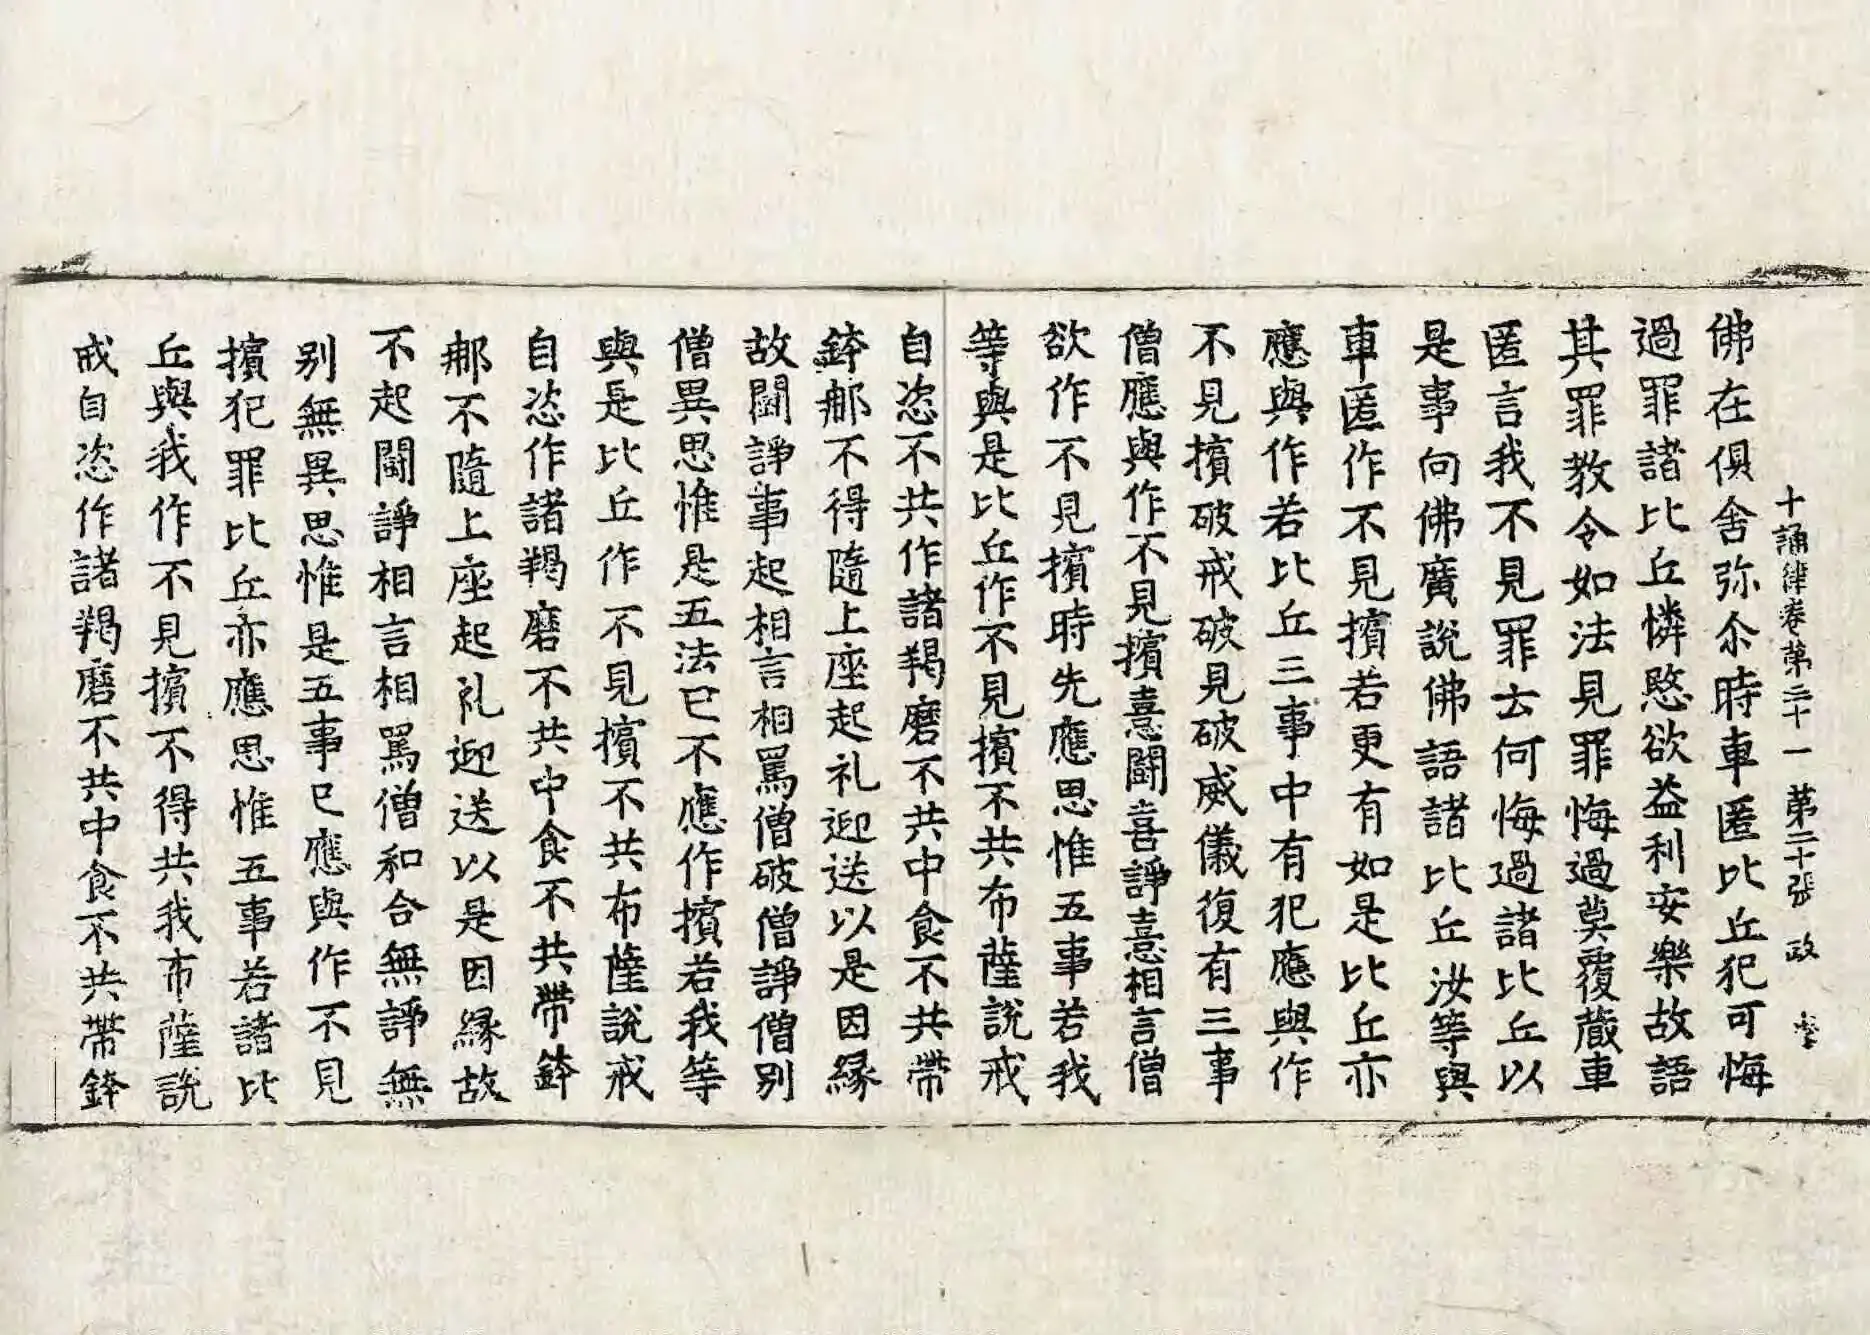 十誦律卷第三十一 第二十張 政
佛在俱舍弥尒時車匿比丘犯可悔
過罪諸比丘憐愍欲益利安樂故語
其罪教令如法見罪悔過莫覆藏車
匿言我不見罪去何悔過諸比丘以
是事向佛廣說佛語諸比丘汝等與
車匿作不見擯若更有如是比丘亦
應與作若比丘三事中有犯應與作
不見擯破戒破見破威儀復有三事
僧應與作不見擯憙鬪喜諍憙相言僧
欲作不見擯時先應思惟五事若我
等與是比丘作不見擯不共布薩說戒
自恣不共作諸羯磨不共中食不共帶
鉢那不得隨上座起礼迎送以是因縁
故鬪諍事起相言相罵僧破僧諍僧别
僧異思惟是五法已不應作擯若我等
與是比丘作不見擯不共布薩說戒
自恣作諸羯磨不共中食不共帶鉢
那不隨上座起礼迎送以是因縁故
不起鬪諍相言相罵僧和合無諍無
别無異思惟是五事已應與作不見
擯犯罪比丘亦應思惟五事若諸比
丘與我作不見擯不得共我布薩說
戒自恣作諸羯磨不共中食不共帶鉢